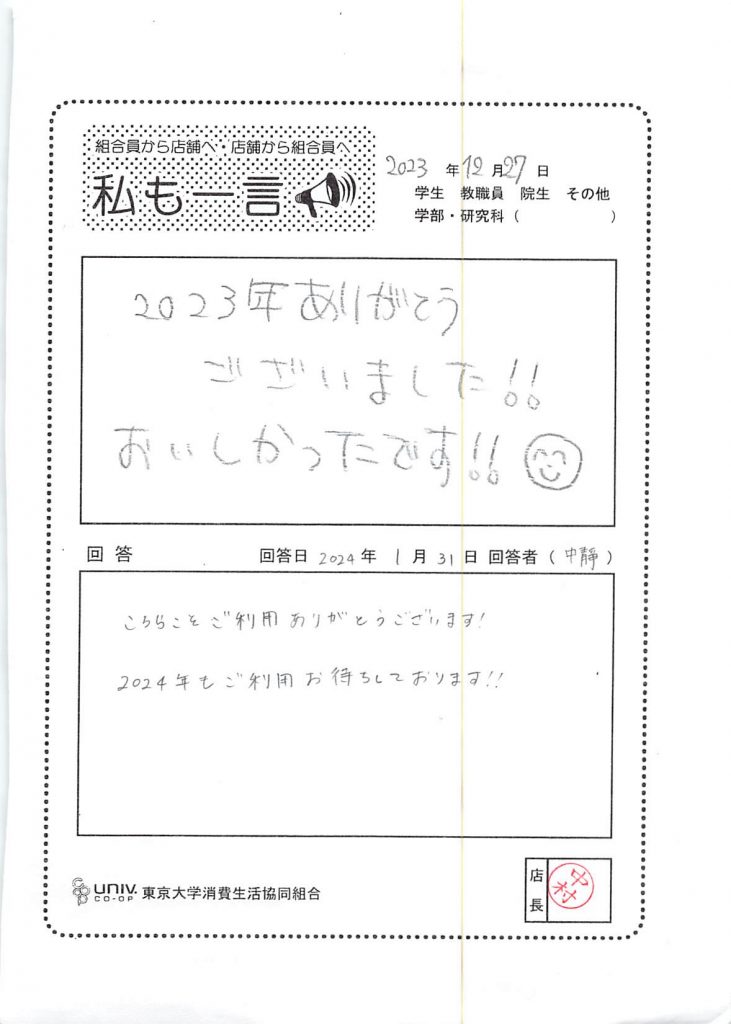 組合員から店舗へ・店舗から組合員へ
私も一言
2023年12月27日
学生 教職員 院生 その他
学部・研究科（ ）
2023年ありがとう
ございました!!
おいしかったです!!
回答 回答日 2024年 1月31日 回答者（中靜）
こちらこそご利用ありがとうございます!
2024年もご利用お待ちしております!!
UNIV. CO-OP 東京大学消費生活協同組合
店長 中村